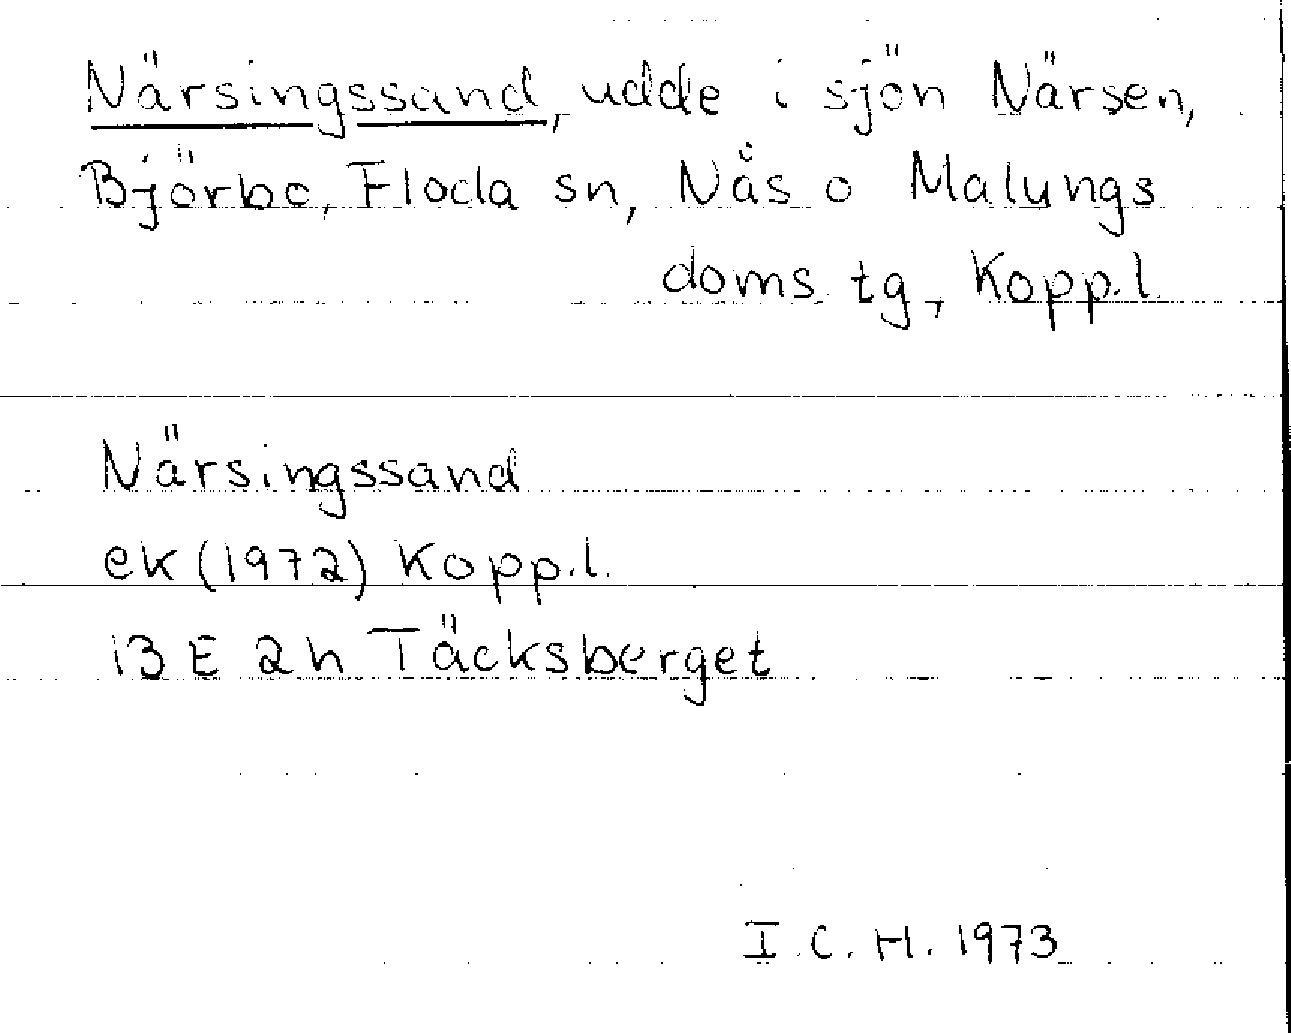 Närsingssand, udde i sjön Närsen,
Björbo, Floda sn, Nås o Malungs
doms tg, Kopp.l.
Närsingssand
ek (1972) Kopp.l.
13 E 2h Täcksberget
I.C.H. 1973